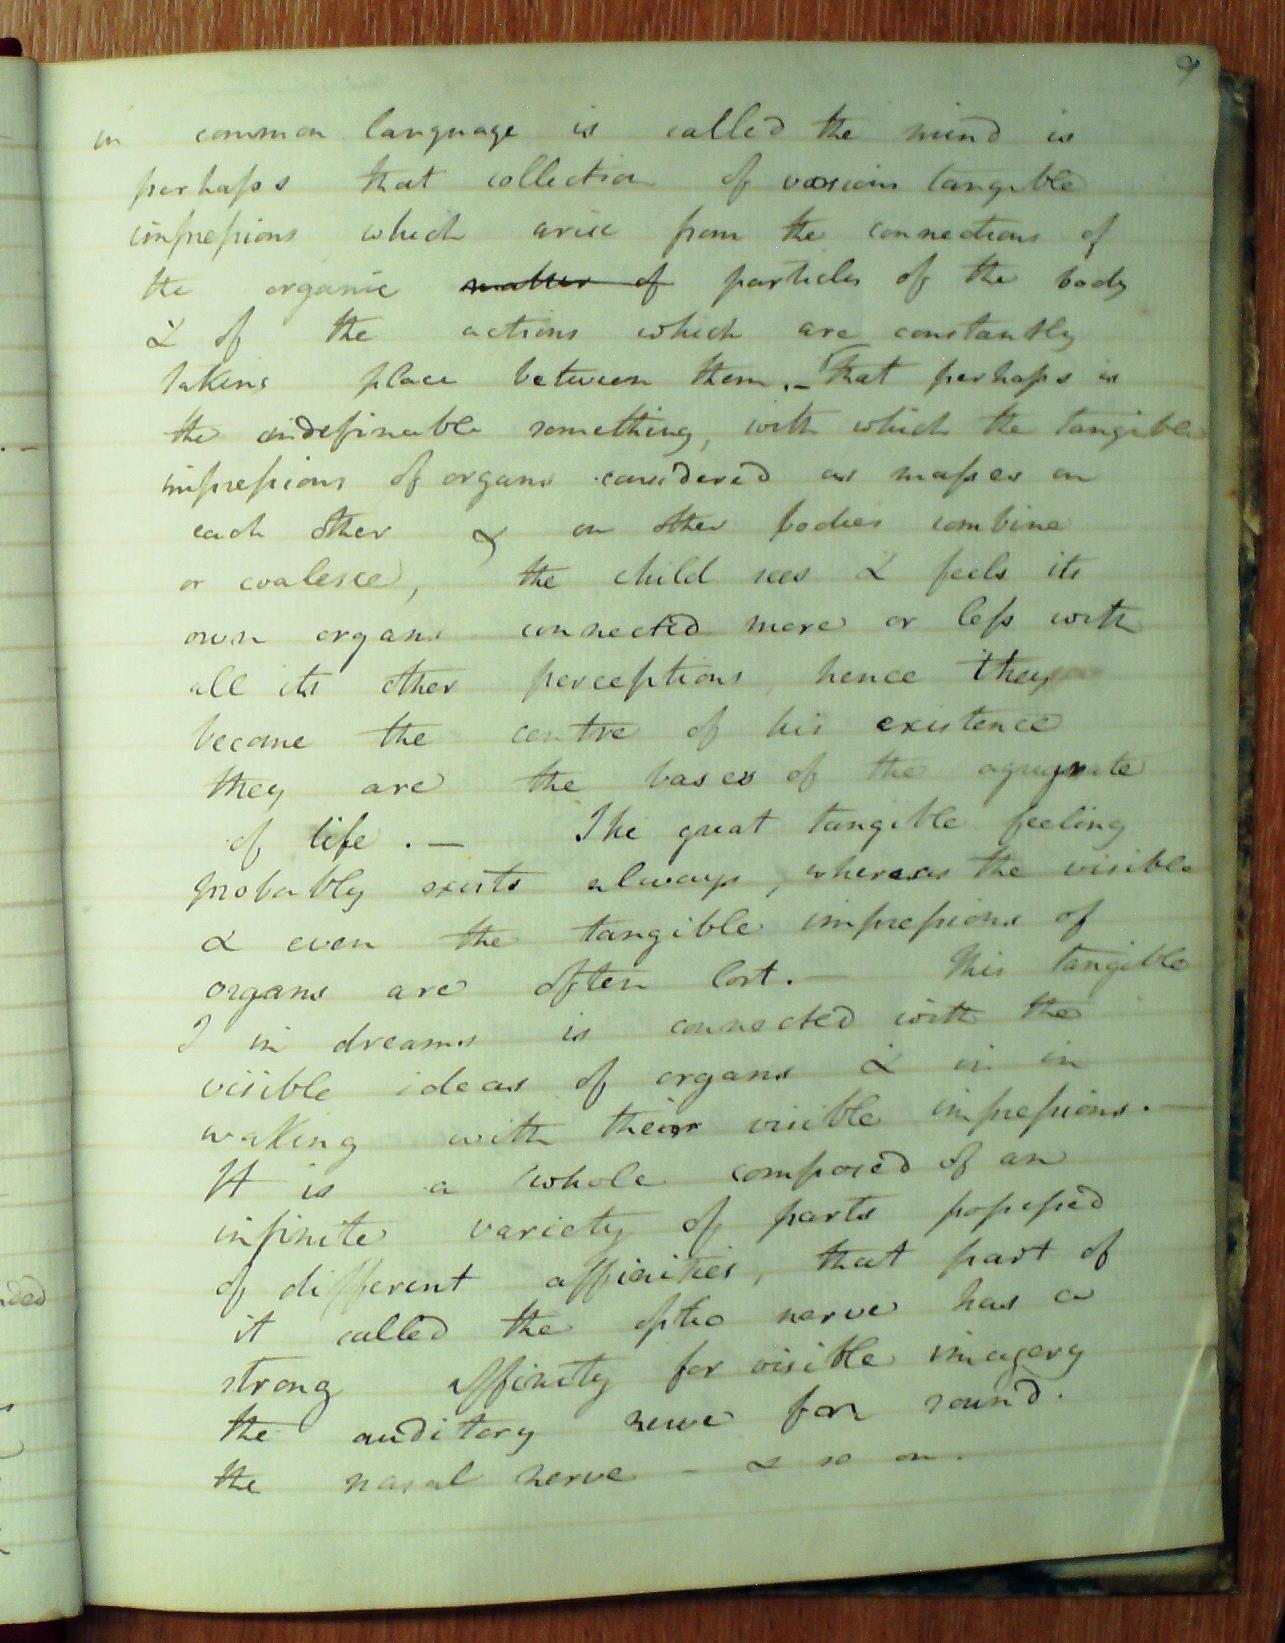 9
in common language is called the mind is
perhaps that collection of various tangible
impressions which arise from the connections of
the organic matter of particles of the body
& of the actions which are constantly
taking place between them. - That perhaps is
the indefinable something, with which the tangible
impressions of organs considered as masses on
each other & on other bodies combine
or coalesce, the child sees & feels its
own organs connected more or less with
all its other perceptions, hence they
become the centre of his existence
they are the bases of the aggregate
of life. — The great tangible feeling
probably exists always, whereas the visible
& even the tangible impressions of
organs are often lost. — This tangible
I in dreams is connected with the
visible ideas of organs & is in
waking with their visible impressions. -
It is a whole composed of an
infinite variety of parts possessed
of different affinities, that part of
it called the optic nerve has a
strong affinity for visible imagery
the auditory nerve for sound.
the nasal nerve - & so on.